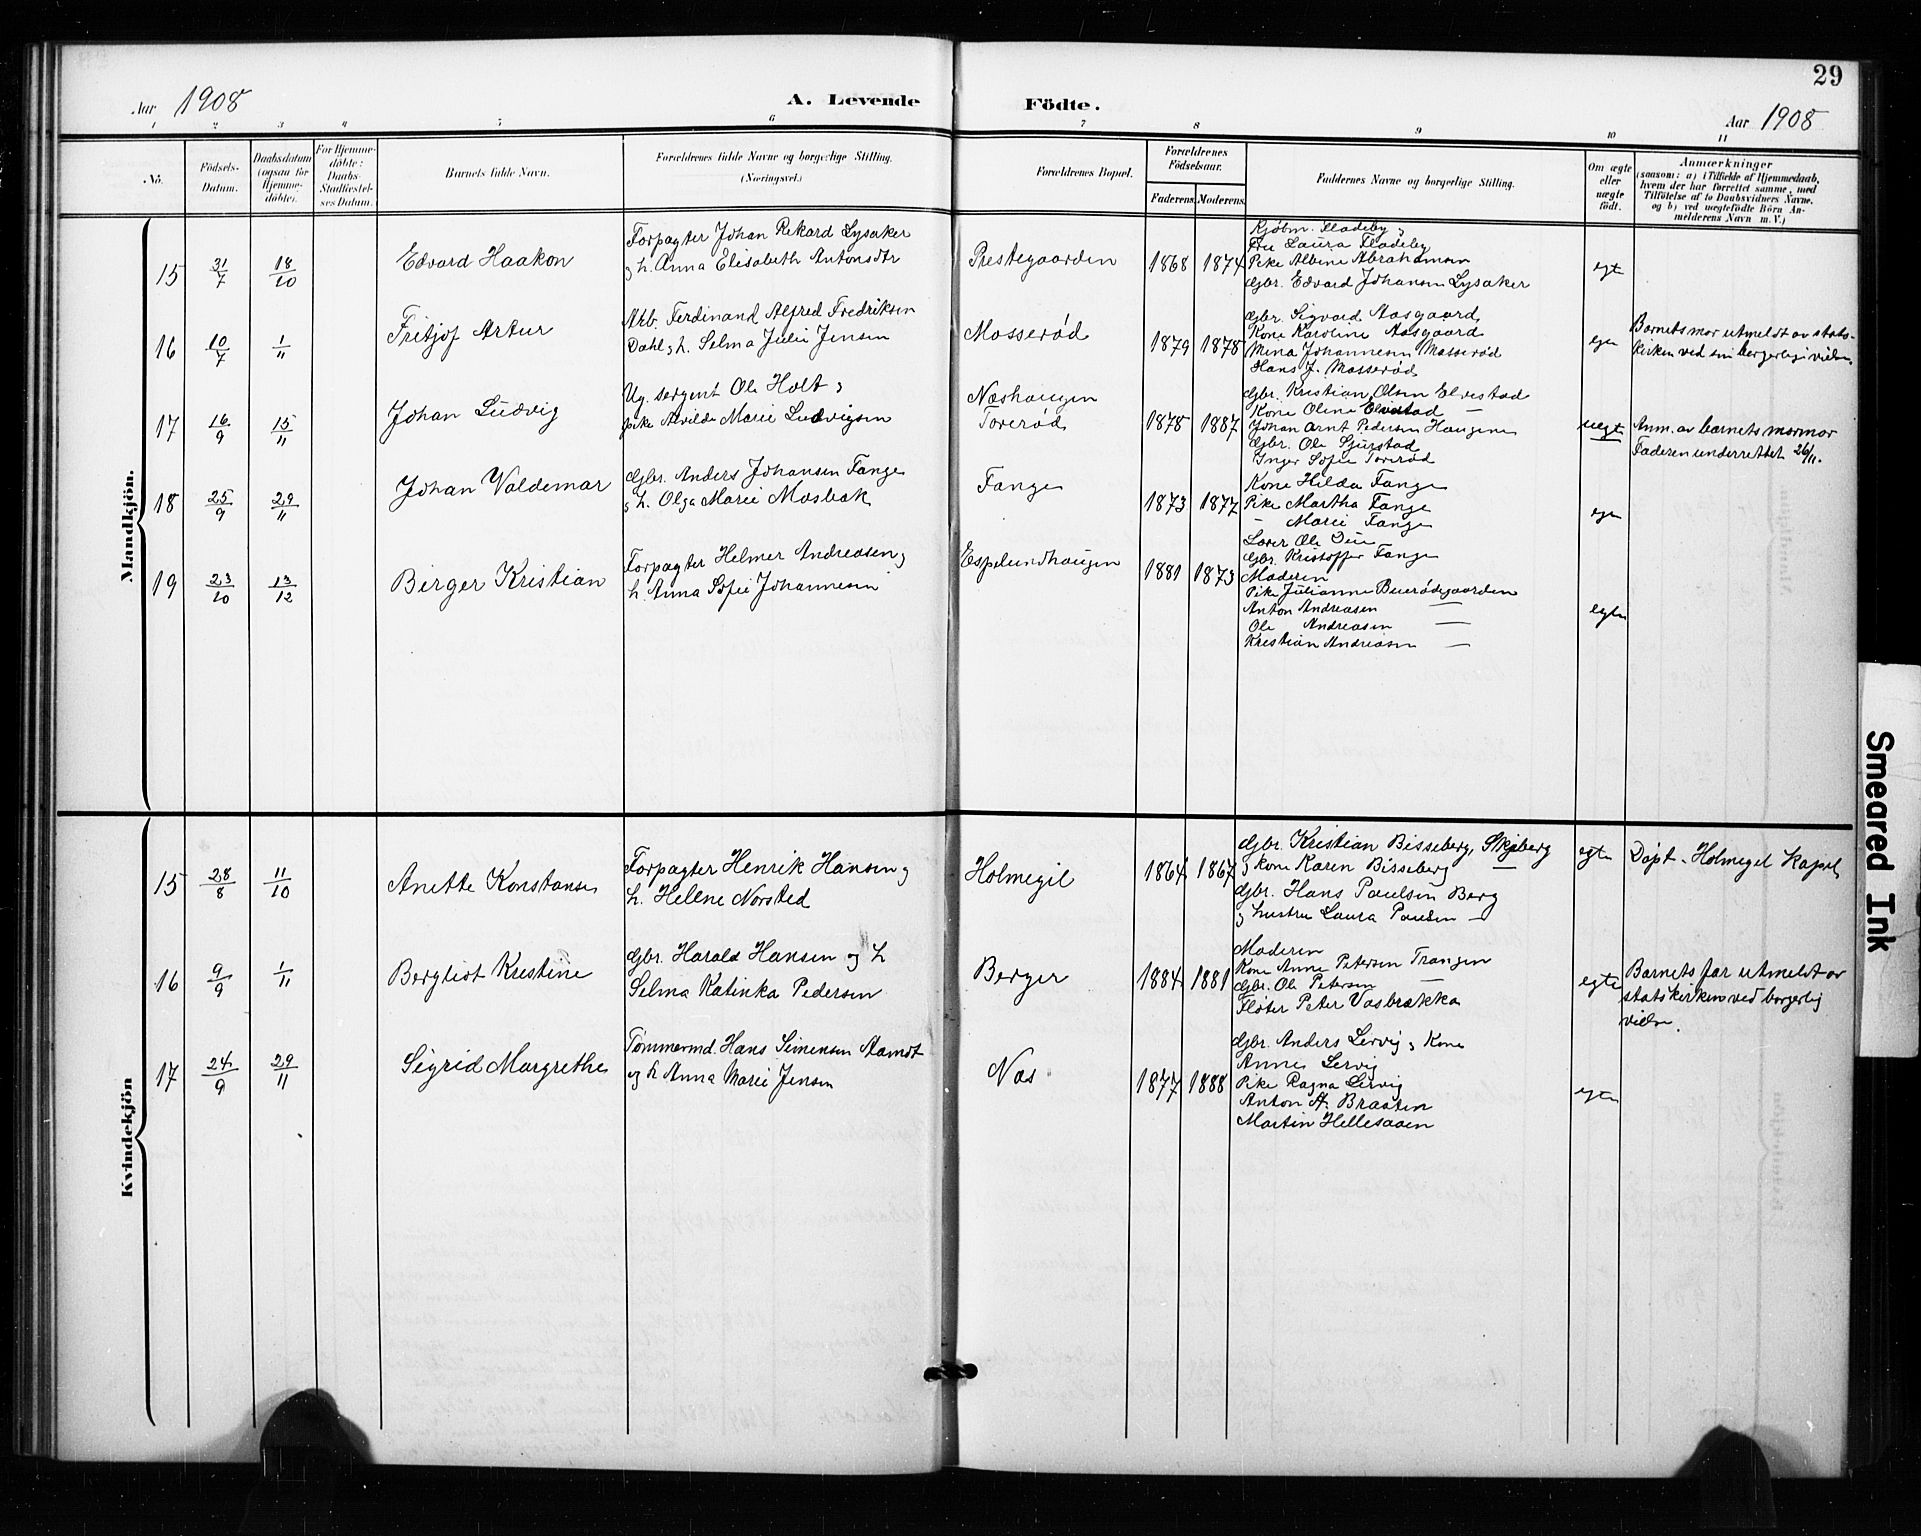 29
Aar 1908
A. Levende Födte.
Aar 1908
1 2 3 4 5 6 7 8 9 10 11
No.
Födsels-
Datum.
Daabsdatum
(ogsaa for
Hjemme-
döbte).
For Hjemme-
döbte:
Daabs-
Stadfæstel-
ses Datum.
Barnets fulde Navn.
Forældrenes fulde Navne og borgerlige Stilling.
(Næringsvei.)
Forældrenes Bopæl.
Forældrenes
Födselsaar.
Faderens. Moderens.
Faddernes Navne og borgerlige Stilling.
Om ægte
eller
uægte
født.
Anmærkninger
(saasom: a) i Tilfælde af Hjemmedaab,
hvem der har forrettet samme, med
Tilföielse af to Daabsvidners Navne.
og b) ved uægtefödte Börn An-
melderens Navn m. V.)
Mandkjön.
15
31/7
18/10
Edvard Haakon
Forpagter Johan Rikard Lysaker
og h. Anna Elisabeth Antonsdtr
Prestegaarden
1868 1874
Kjøbm. Fladeby og
Fru Laura Fladeby
Pike Albine Abrahamsen
Gbr. Edvard Johansen Lysaker
egte
16
10/7
1/11
Fritjof Artur
Arb. Ferdinand Alfred Fredriksen
Dahl og h. Selma Julie Jensen
Mosserød
1879 1878
Gbr. Sigvard Aasgaard
Kone Karoline Aasgaard
Mina Johannesen Mosserød
Hans J. Mosserød
egte
Barnets mor utmeldt av stats-
kirken ved sin borgerlige vielse
17
16/9
15/11
Johan Ludvig
Ug. sergent Ole Holt og
pike Alvilde Marie Ludvigsen
Næshaugen
Torerød
1878 1887
Gbr. Kristian Olsen Elvestad
Kone Oline Elvestad —
Johan Arnt Pedersen Haugene
Gbr. Ole Sjurstad
Inger Sofie Torerød
uegte
Anm. av barnets mormor
Faderen underrettet 26/11.
18
25/9
29/11
Johan Valdemar
Gbr. Anders Johansen Fange
og h. Olga Marie Mosbæk
Fange
1873 1877
Kone Hilda Fange
Pike Martha Fange
— Marie Fange
Lærer Ole Due
Gbr. Kristoffer Fange
egte
19
23/10
13/12
Birger Kristian
Forpagter Helmer Andreasen og
h. Anna Sofie Johannesen
Espelundhaugen
1881 1873
Moderen
Pike Julianne Buerødegaarden
Anton Andreasen —
Ole Andreasen —
Kristian Andreasen —
egte
Kvindekjön
15
28/8
11/10
Anette Konstanse
Forpagter Henrik Hansen og
h. Hellene Norsted
Holmegil
1864 1867
Gbr. Kristian Bisseberg, Skjeberg
og kone Karen Bisseberg —
Gbr. Hans Paulsen Berg
og hustru Laura Paulsen —
egte
Døpt i Holmegil kapel
16
9/9
1/11
Bergliot Kristine
Gbr. Harald Hansen og h
Selma Katinka Pedersen
Berger
1884 1881
Moderen
Kone Anne Petersen Trangen
Gbr. Ole Petersen —
Fløter Peter Vasbrække
egte
Barnets far utmeldt av
statskirken ved borgerlig
vielse.
17
24/9
29/11
Sigrid Margrethe
Tømmermd. Hans Simensen Aamodt
og h. Anna Marie Jensen
Næs
1877 1888
Gbr. Anders Lervig og Kone
Anne Lervig
Pike Ragna Lervig
Anton A. Braaten
Martin Hellesaaen
egte
Smeared Ink